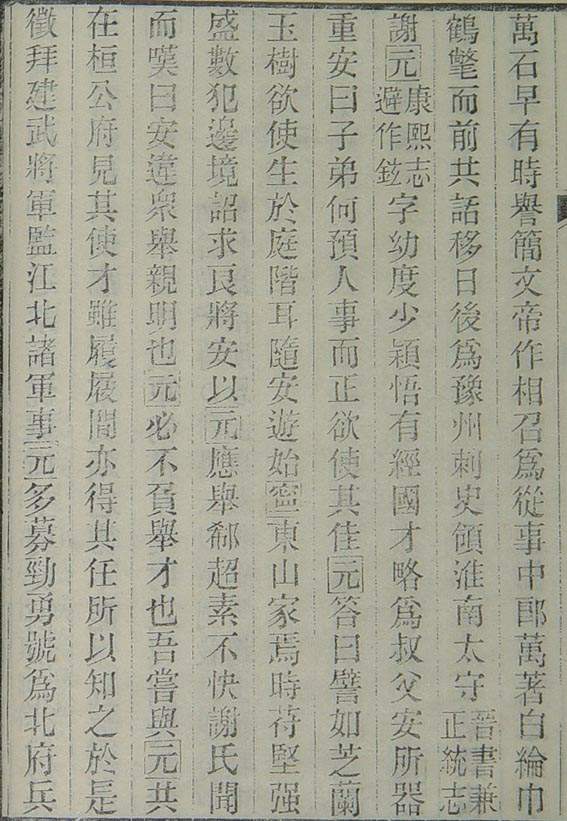 萬石早有時譽簡文帝作相召爲從事中郎萬著白綸巾
鶴氅而前共話移日後爲豫州刺史領淮南太守晉書兼正統志
謝元康熙志避作鉉字幼度少穎悟有經國才略爲叔父安所器
重安曰子弟何預人事而正欲使其佳元答曰譬如芝蘭
玉樹欲使生於庭階耳隨安遊始寧東山家焉時苻堅强
盛數犯邊境詔求良將安以元應舉郗超素不快謝氏聞
而嘆曰安違衆舉親明也元必不負舉才也吾嘗與元共
在桓公府見其使才雖履屐間亦得其任所以知之於是
徵拜建武將軍監江北諸軍事元多募勁勇號爲北府兵